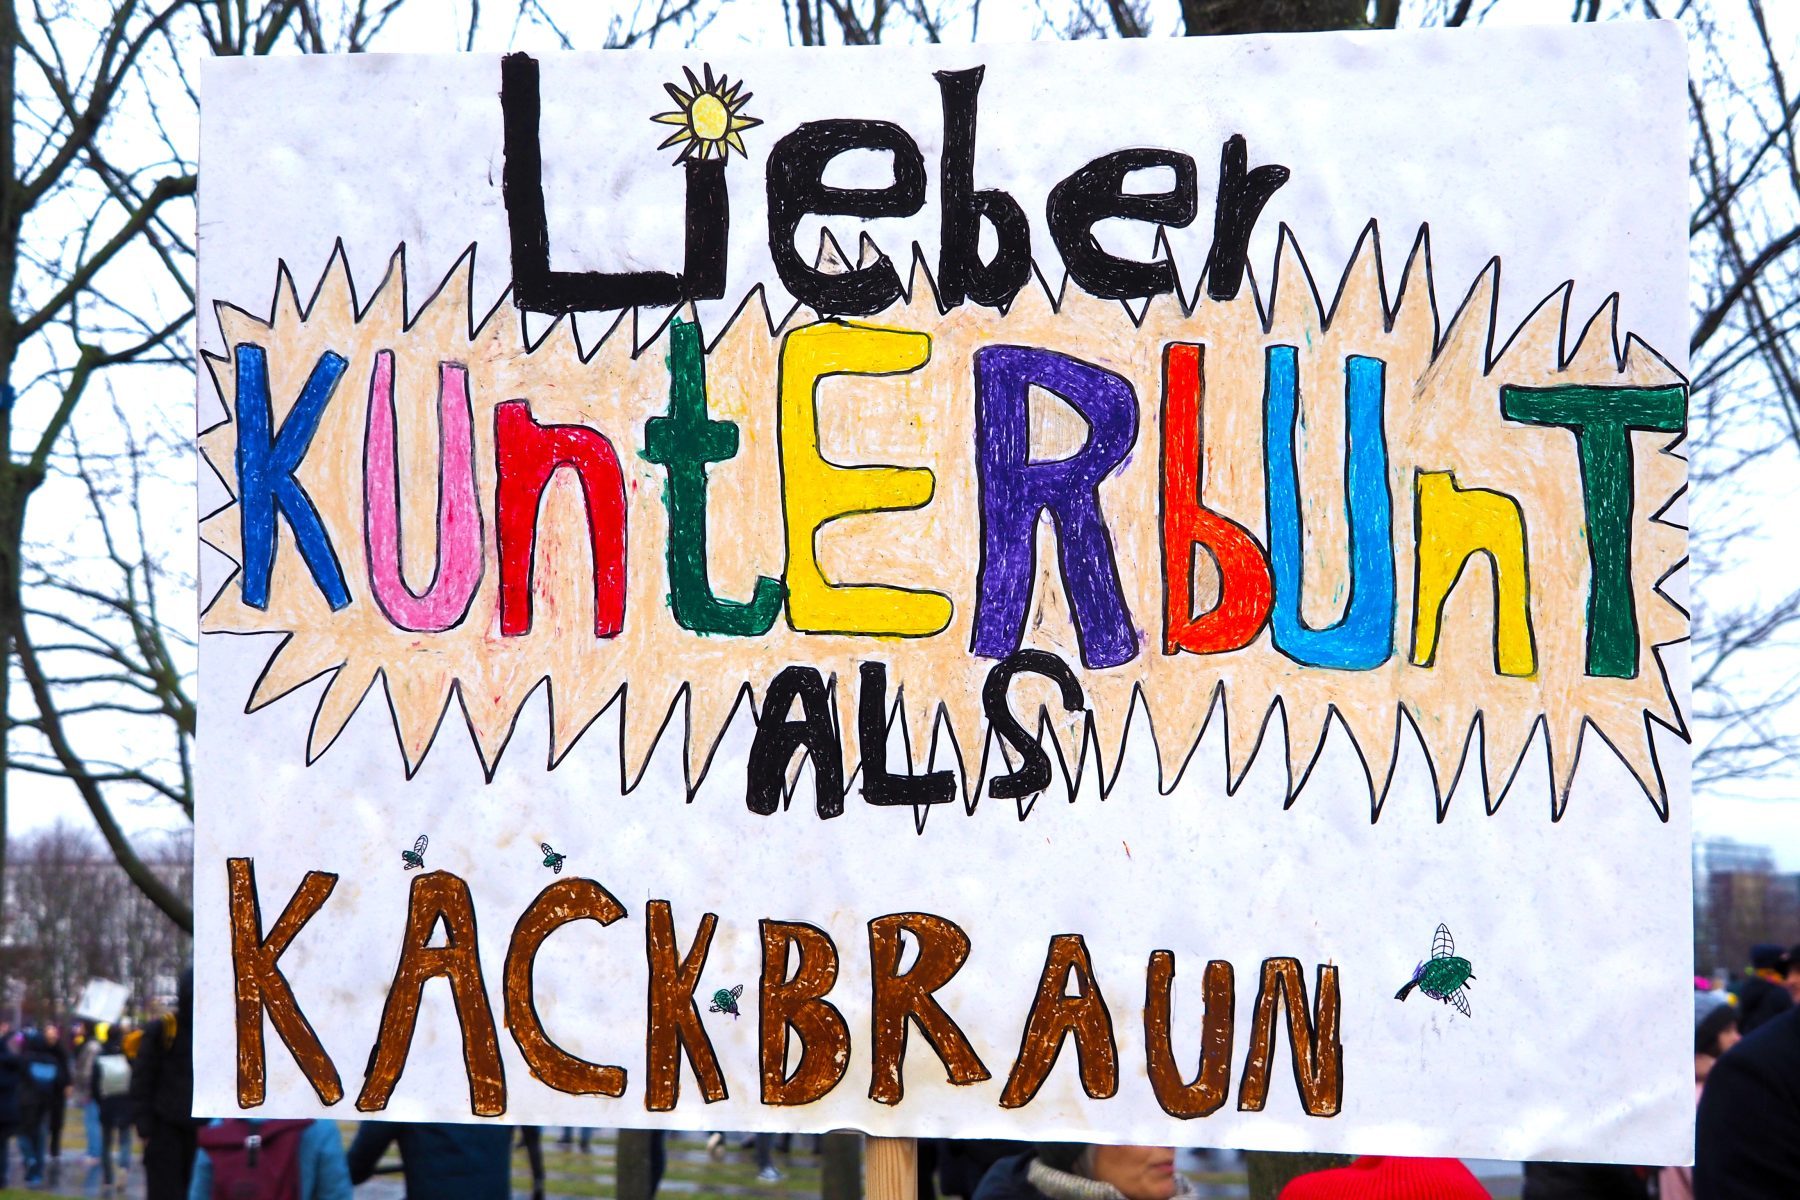 Lieber
KUntERbUnT
ALS
KACKBRAUN